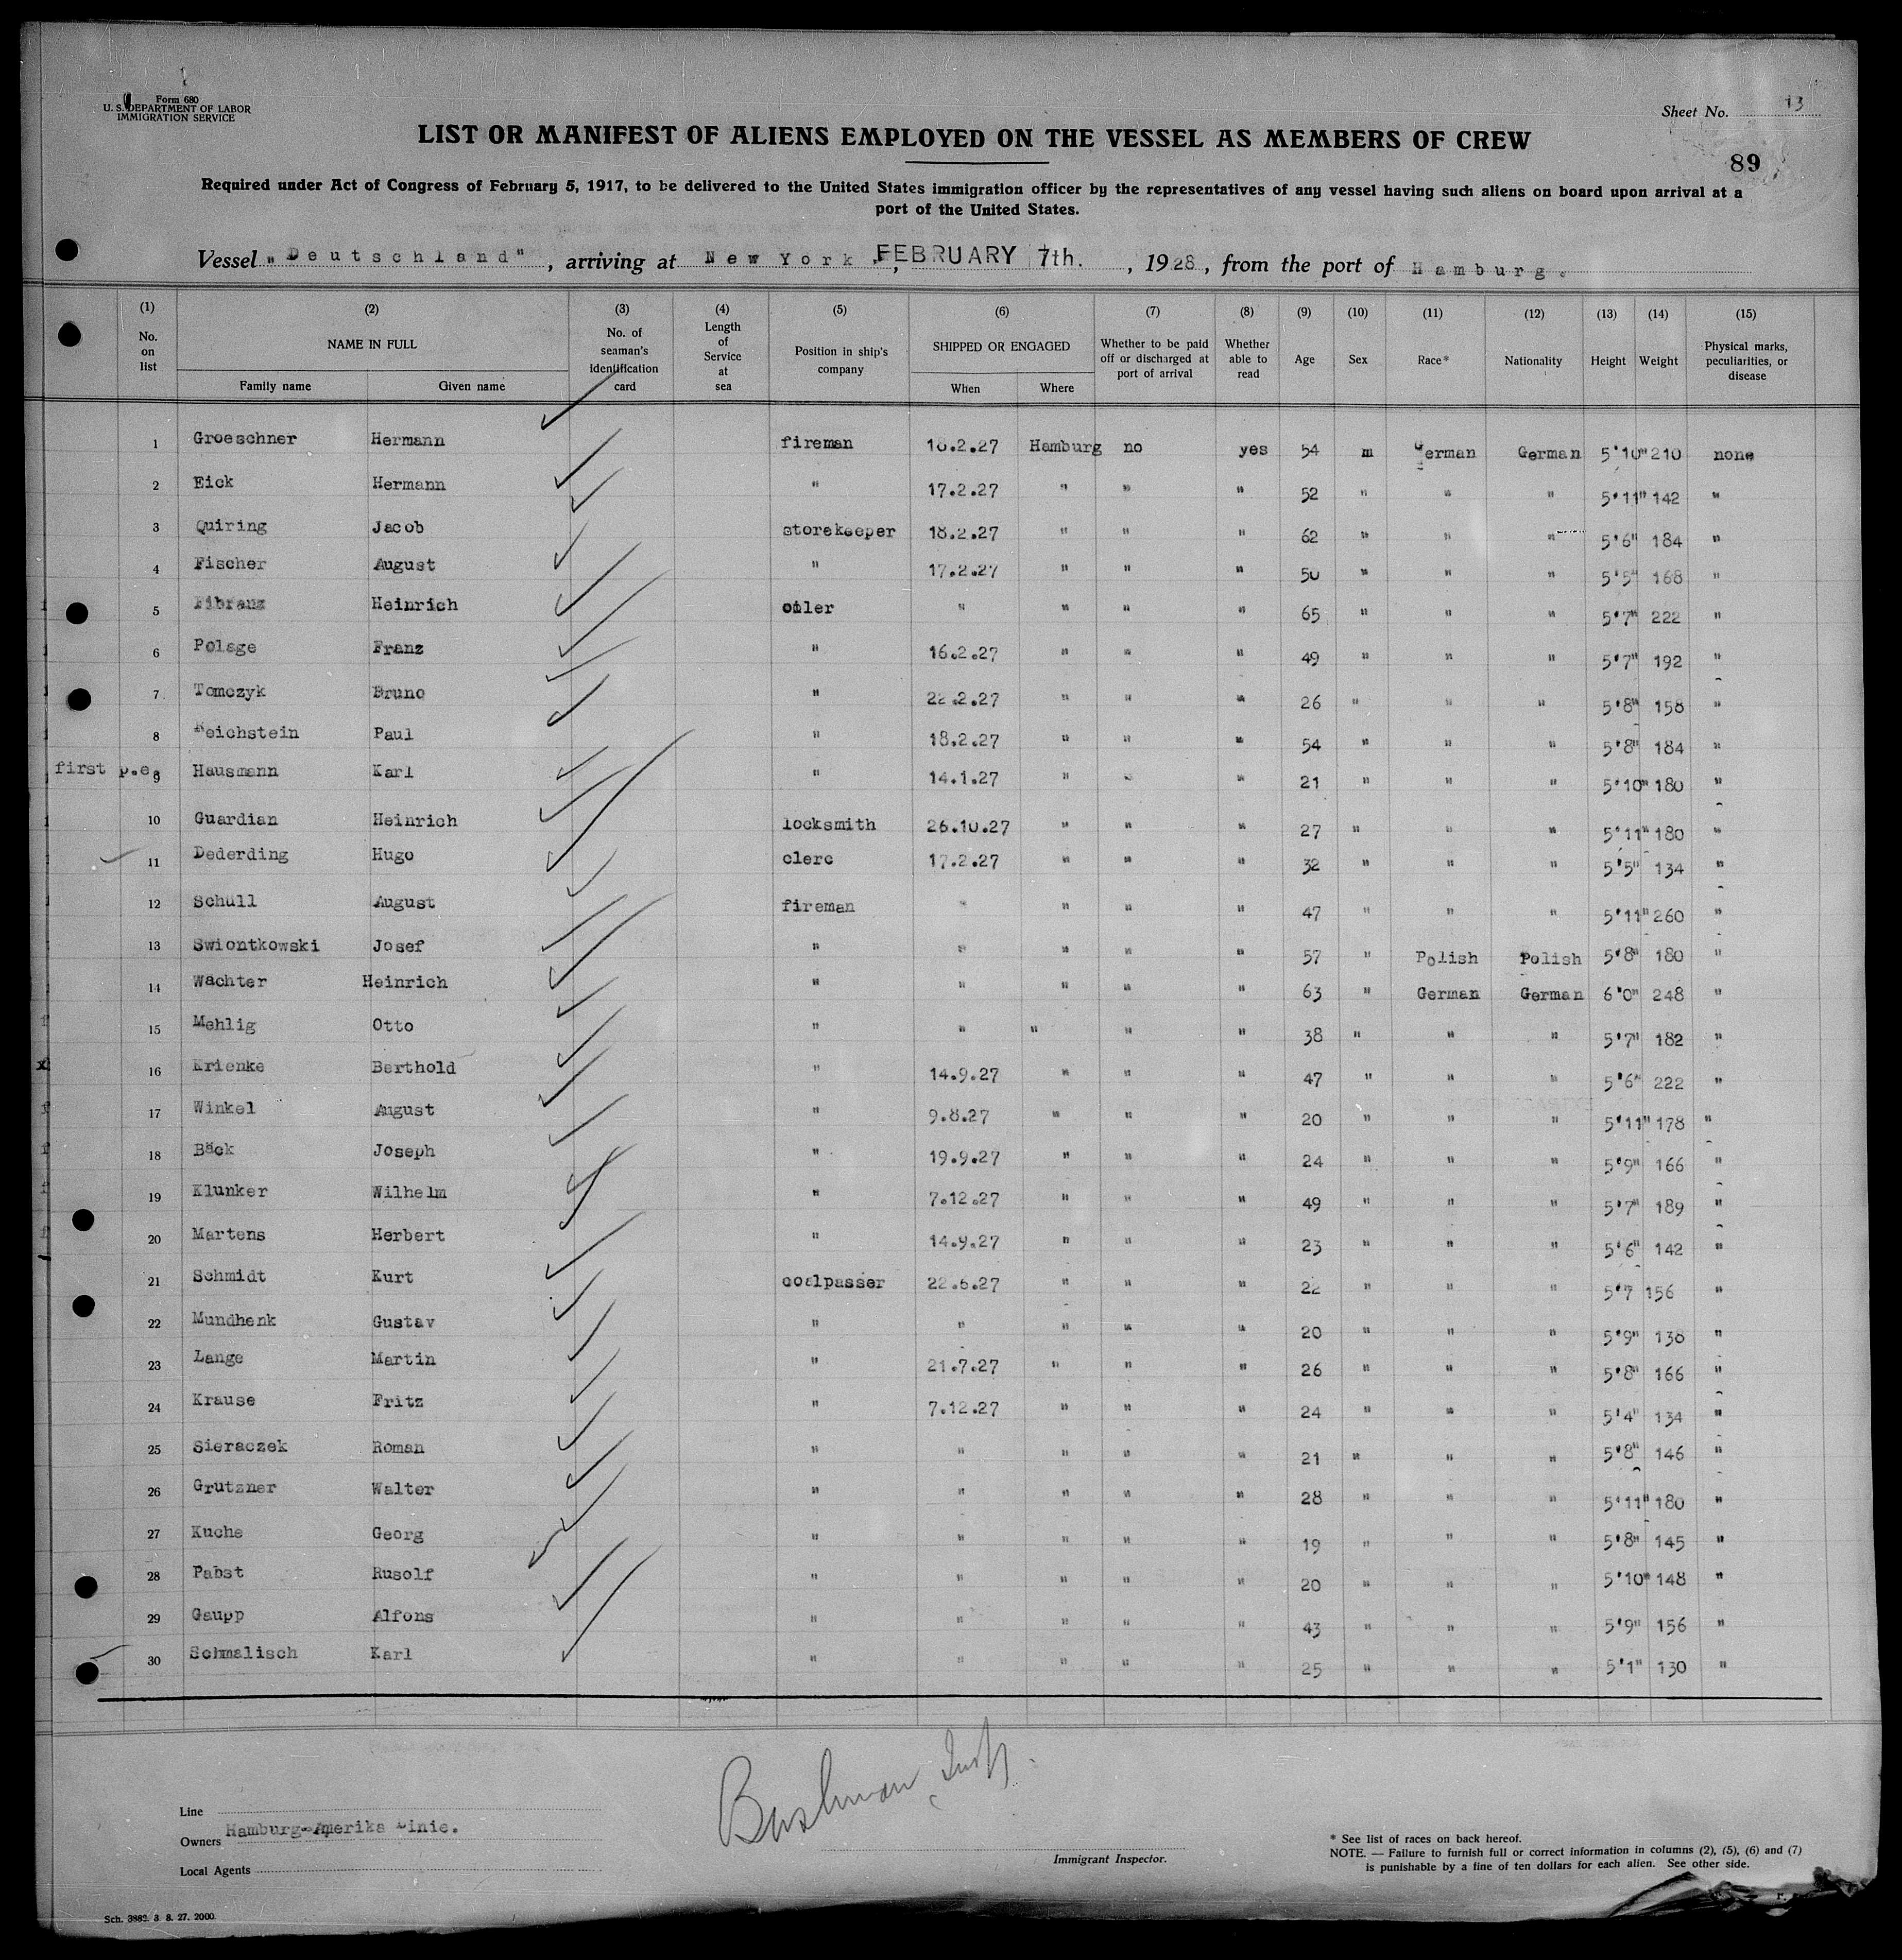 Form 680
U. S. DEPARTMENT OF LABOR
IMMIGRATION SERVICE
Sheet No. 13
LIST OR MANIFEST OF ALIENS EMPLOYED ON THE VESSEL AS MEMBERS OF CREW
89
Required under Act of Congress of February 5, 1917, to be delivered to the United States immigration officer by the representatives of any vessel having such aliens on board upon arrival at a
port of the United States.
Vessel "Deutschland", arriving at New York, FEBRUARY 7th., 1928, from the port of Hamburg.
(1) (2) (3) (4) (5) (6) (7) (8) (9) (10) (11) (12) (13) (14) (15)
No. on list NAME IN FULL Family name Given name No. of seaman's identification card Length of Service at sea Position in ship's company SHIPPED OR ENGAGED When Where Whether to be paid off or discharged at port of arrival Whether able to read Age Sex Race* Nationality Height Weight Physical marks, peculiarities, or disease
1 Groeschner Hermann fireman 18.2.27 Hamburg no yes 54 m German German 5'10" 210 none
2 Eick Hermann " 17.2.27 " " " 52 " " " 5'11" 142 "
3 Quiring Jacob storekeeper 18.2.27 " " " 62 " " " 5'6" 184 "
4 Fischer August " 17.2.27 " " " 50 " " " 5'5" 168 "
5 Heinrich oiler " " " " 65 " " " 5'7" 222 "
6 Polage Franz " 16.2.27 " " " 49 " " " 5'7" 192 "
7 Tomczyk Bruno " 22.2.27 " " " 26 " " " 5'8" 158 "
8 Reichstein Paul " 18.2.27 " " " 54 " " " 5'8" 184 "
first p.e. 9 Hausmann Karl " 14.1.27 " " " 21 " " " 5'10" 180 "
10 Guardian Heinrich locksmith 26.10.27 " " " 27 " " " 5'11" 180 "
11 Dederding Hugo clerc 17.2.27 " " " 32 " " " 5'5" 134 "
12 Schull August fireman " " " " 47 " " " 5'11" 260 "
13 Swiontkowski Josef " " " " " 57 " Polish Polish 5'8" 180 "
14 Wächter Heinrich " " " " " 63 " German German 6'0" 248 "
15 Mehlig Otto " " " " " 38 " " " 5'7" 182 "
16 Krienke Berthold " 14.9.27 " " " 47 " " " 5'6" 222 "
17 Winkel August " 9.8.27 " " " 20 " " " 5'11" 178 "
18 Bäck Joseph " 19.9.27 " " " 24 " " " 5'9" 166 "
19 Klunker Wilhelm " 7.12.27 " " " 49 " " " 5'7" 189 "
20 Martens Herbert " 14.9.27 " " " 23 " " " 5'6" 142 "
21 Schmidt Kurt coalpasser 22.6.27 " " " 22 " " " 5'7 156 "
22 Mundhenk Gustav " " " " " 20 " " " 5'9" 138 "
23 Lange Martin " 21.7.27 " " " 26 " " " 5'8" 166 "
24 Krause Fritz " 7.12.27 " " " 24 " " " 5'4" 134 "
25 Sieraczek Roman " " " " " 21 " " " 5'8" 146 "
26 Grutzner Walter " " " " " 28 " " " 5'11" 180 "
27 Kuche Georg " " " " " 19 " " " 5'8" 145 "
28 Pabst Rusolf " " " " " 20 " " " 5'10" 148 "
29 Gaupp Alfons " " " " " 43 " " " 5'9" 156 "
30 Schmalisch Karl " " " " " 25 " " " 5'1" 130 "
Bushman, Insp.
Line
Owners Hamburg-Amerika Linie.
Local Agents
Immigrant Inspector.
* See list of races on back hereof.
NOTE. — Failure to furnish full or correct information in columns (2), (5), (6) and (7)
is punishable by a fine of ten dollars for each alien. See other side.
Sch. 3882. 3 8. 27. 2000.